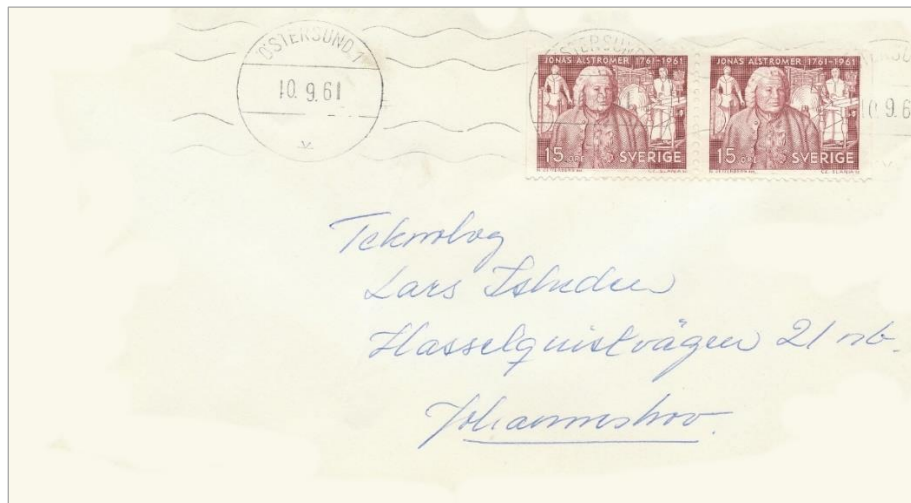 ÖSTERSUND 1
10. 9. 61
ÖSTERSUND
10. 9. 6
JONAS ALSTRÖMER 1761-1961
15 ÖRE SVERIGE
JONAS ALSTRÖMER 1761-1961
15 ÖRE SVERIGE
Teknolog
Lars
Hasselquistvägen 21 nb.
Johanneshov.